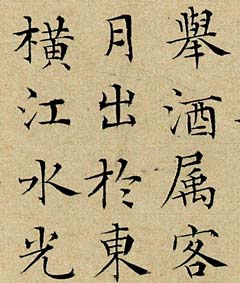 舉酒属客
月出於東
横江水光